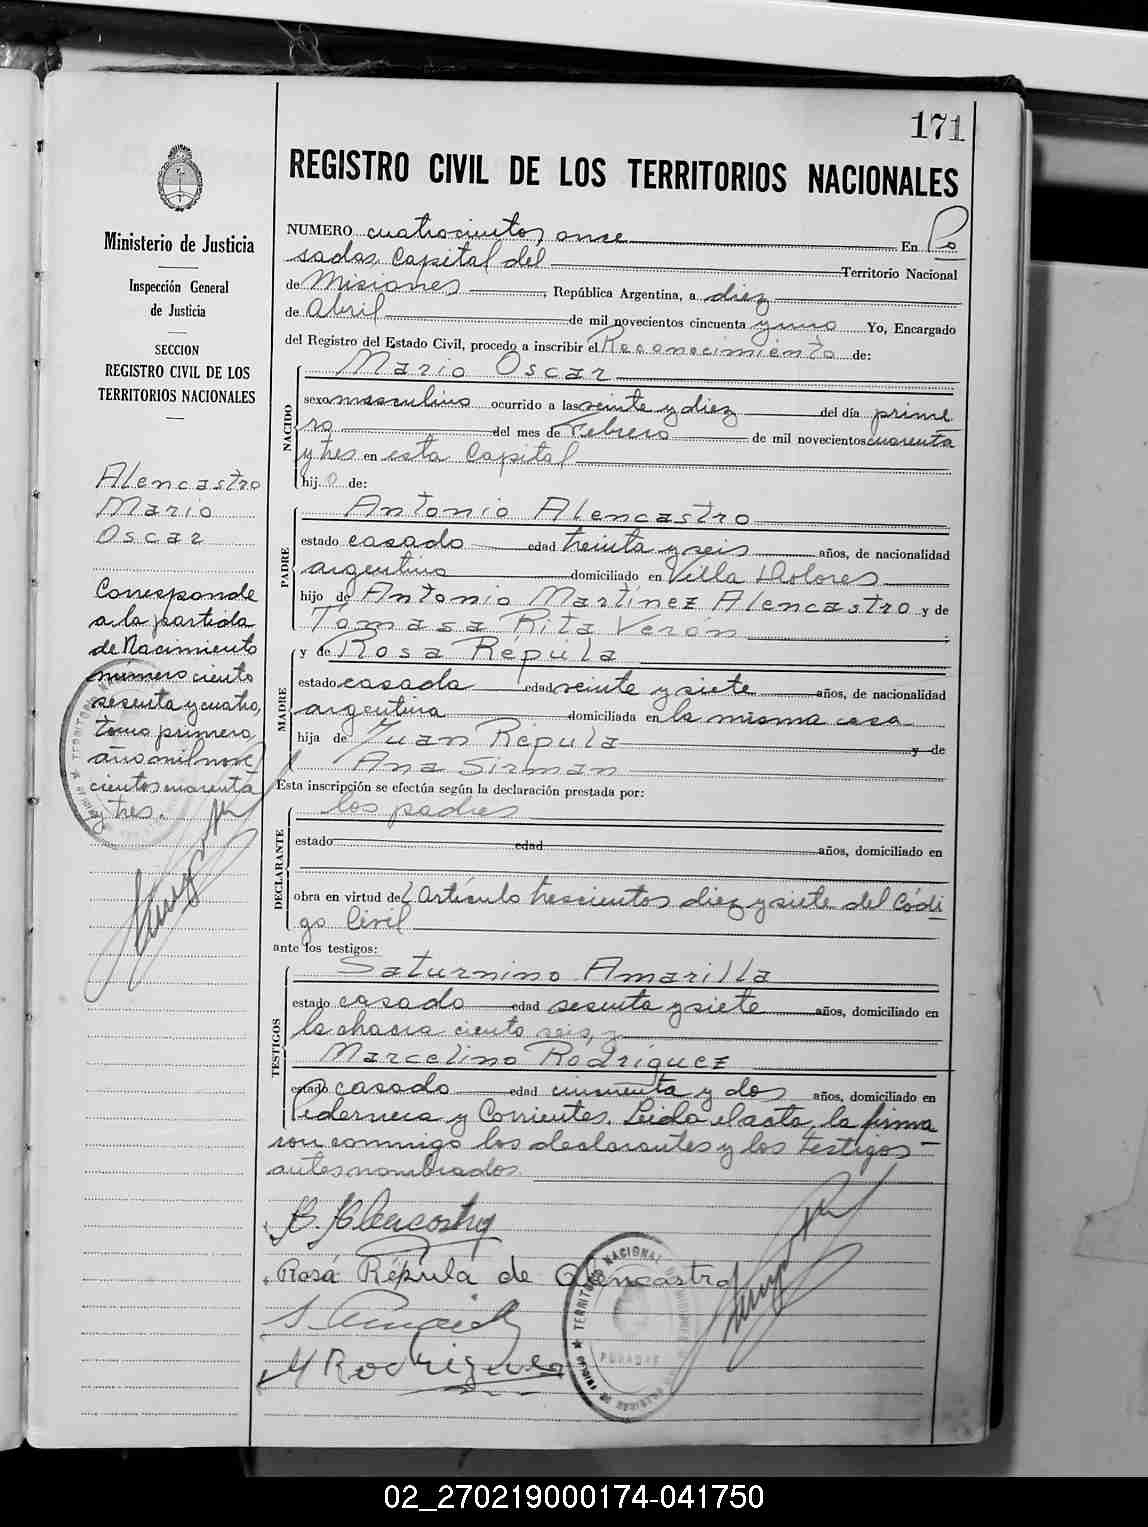 171
REGISTRO CIVIL DE LOS TERRITORIOS NACIONALES
Ministerio de Justicia
Inspección General
de Justicia
SECCION
REGISTRO CIVIL DE LOS
TERRITORIOS NACIONALES
Alencastro
Mario
Oscar
Corresponde
a la partida
de Nacimiento
número ciento
sesenta y cuatro,
tomo primero
año mil nove
cientos cuarenta
y tres.
NUMERO cuatrocientos once En Po
sadas Capital del Territorio Nacional
de Misiones, República Argentina, a diez
de Abril de mil novecientos cincuenta y uno Yo, Encargado
del Registro del Estado Civil, procedo a inscribir el Reconocimiento de:
NACIDO
Mario Oscar
sexo masculino ocurrido a las veinte y diez del día prime
ro del mes de Febrero de mil novecientos cuarenta
y tres en esta Capital
hij o de:
PADRE
Antonio Alencastro
estado casado edad treinta y seis años, de nacionalidad
argentino domiciliado en Villa Dolores
hijo de Antonio Martínez Alencastro y de
Tomasa Rita Verón
MADRE
y de Rosa Repula
estado casada edad veinte y siete años, de nacionalidad
argentina domiciliada en la misma casa
hija de Juan Repula y de
Ana Sirman
Esta inscripción se efectúa según la declaración prestada por:
DECLARANTE
los padres
estado edad años, domiciliado en
obra en virtud del Artículo trescientos diez y siete del Códi
go Civil
ante los testigos:
TESTIGOS
Saturnino Amarilla
estado casado edad sesenta y siete años, domiciliado en
la chacra ciento seis, y
Marcelino Rodríguez
estado casado edad cincuenta y dos años, domiciliado en
Pedernera y Corrientes. Leída el acta, la firma
ron conmigo los declarantes y los testigos
antes nombrados.
Rosa Répula de Alencastro
M Rodriguez
TERRITORIO NACIONAL
POSADAS
02_270219000174-041750